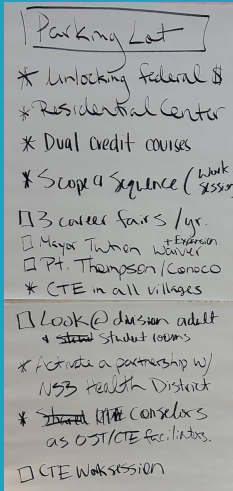 Parking Lot
* Unlocking Federal $
* Residential Center
* Dual Credit courses
* Scope & Sequence (Work
Session
□ 3 career fairs / yr.
+ Expansion
□ Mayor Tuition Waiver
□ Pt. Thompson/Conoco
* CTE in all villages
□ Look @ division adult
& Student rooms
* Activate a partnership w/
NSB Health District
* Conselors
as OJT/CTE facilitators.
□ CTE Worksession